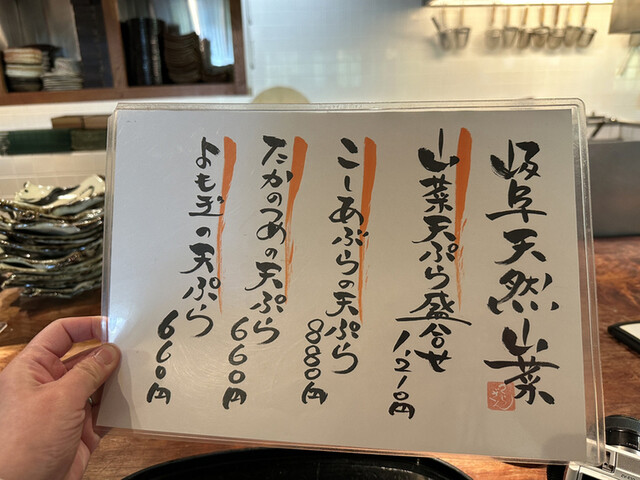 岐阜天然山菜
山菜天ぷら盛合せ 1,210円
こしあぶらの天ぷら 880円
たかのつめの天ぷら 660円
よもぎの天ぷら 660円